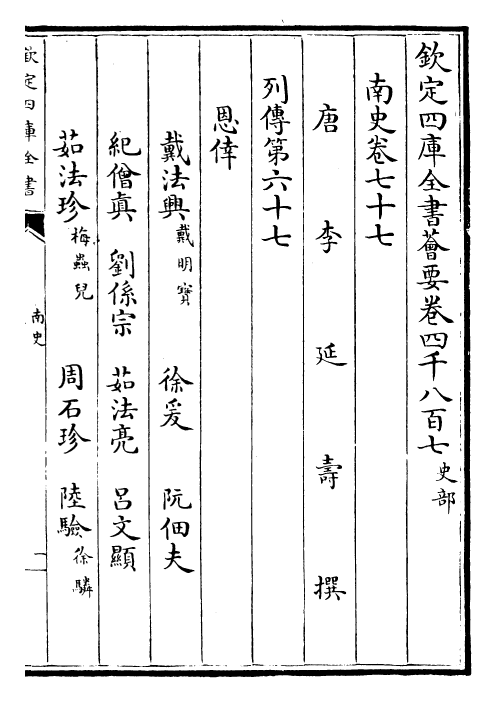 欽定四庫全書薈要卷四千八百七 史部
南史卷七十七
唐 李 延 壽 撰
列傳第六十七
恩倖
戴法興 戴明寳 徐爰 阮佃夫
紀僧眞 劉係宗 茹法亮 呂文顯
茹法珍 梅蟲兒 周石珍 陸驗 徐驎
欽定四庫全書
南史
一